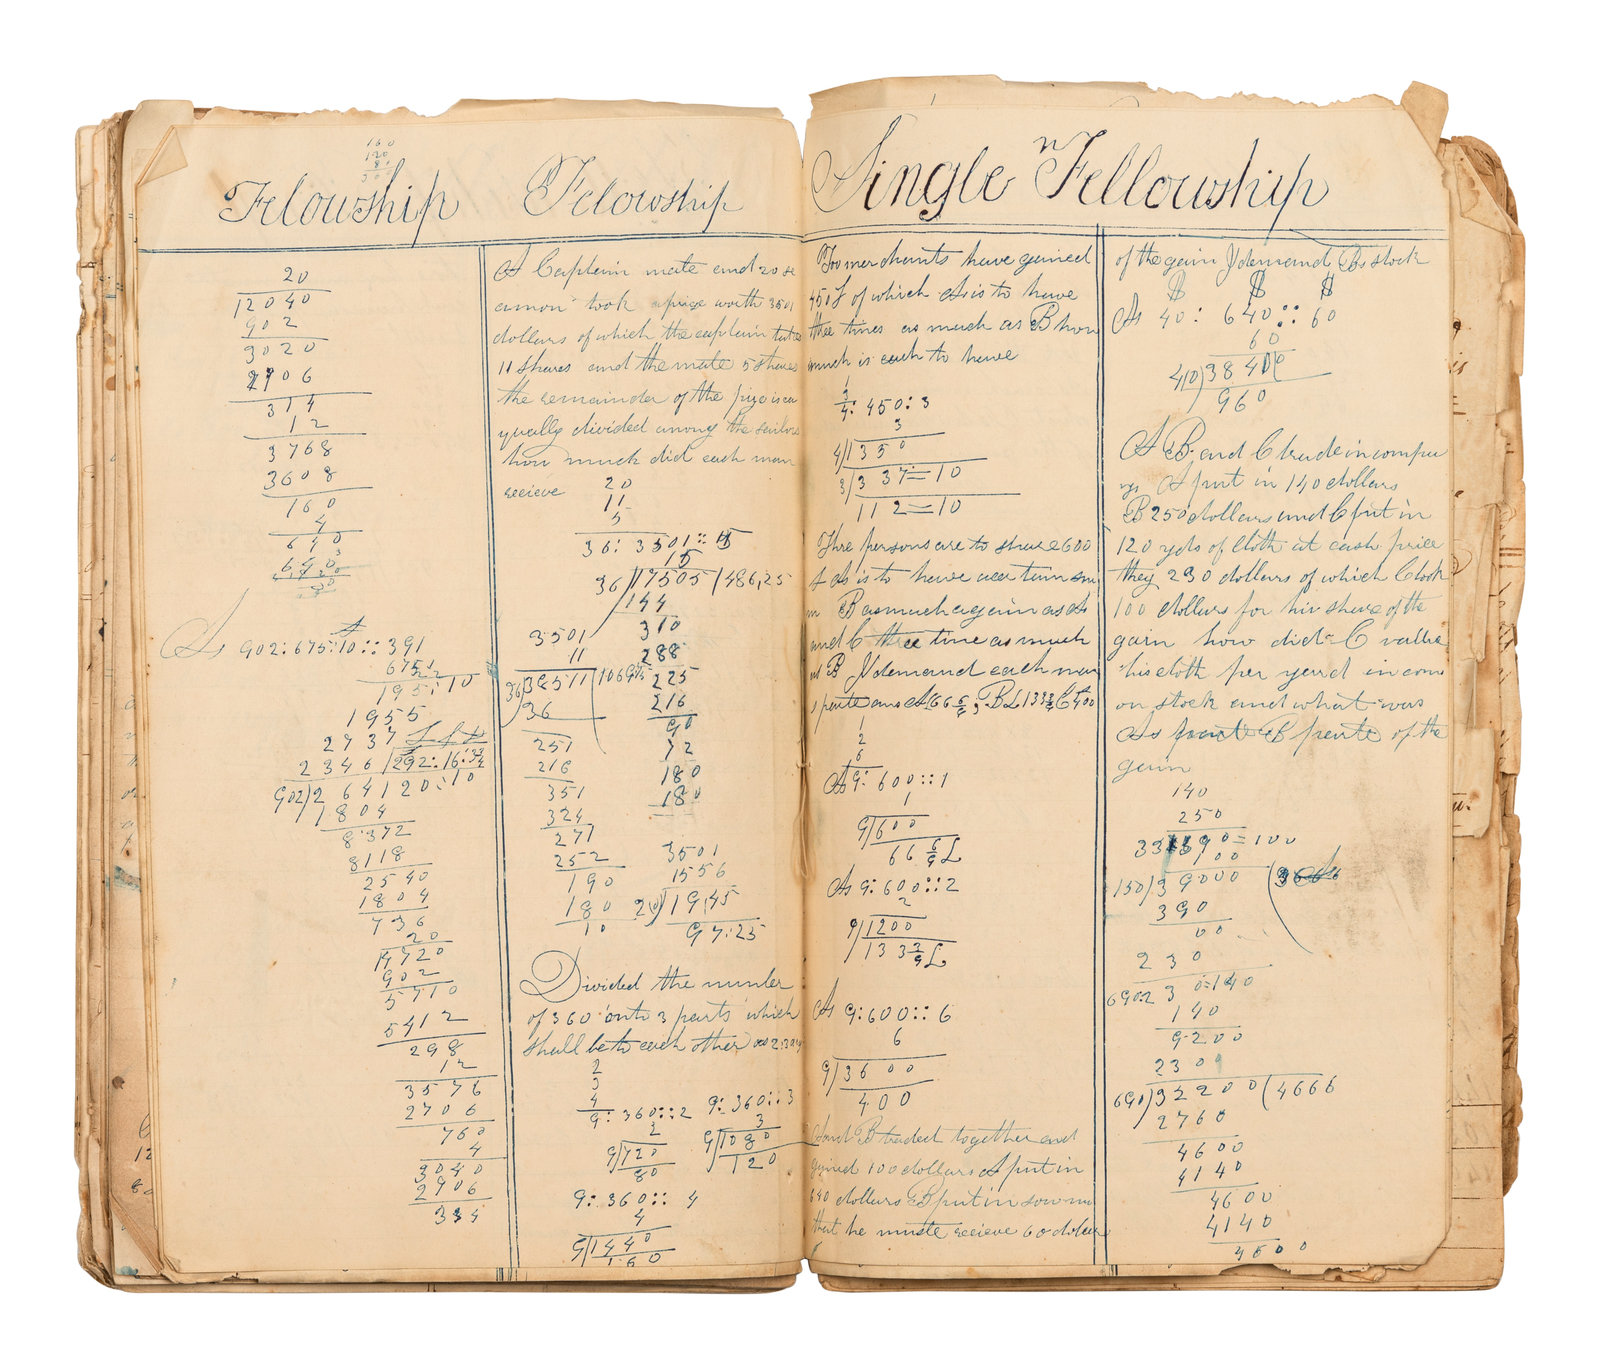 160
120
80
Felowship
20
12040
902
3020
2706
314
12
3768
3608
160
4
640
As 902:675:10::391
6752
1955
2737
2346 292:16:
902)264120:10
1804
8372
8118
2540
1804
736
20
14720
902
5710
5412
298
12
3576
2706
760
4
3040
2706
334
Felowship
A Captain mate and 20 se
amon took a prize worth 3501
dollars of which the captain takes
11 shares and the mate 5 shares
the remainder of the prize is eq
qually divided among the sailors
how much did each man
recieve
20
11
5
36: 3501:: 5
15
36)17505(486,25
144
310
288
225
216
90
72
180
180
3501
11
36)38511 106975
36
251
216
351
324
271
252
190
180
10
3501
1556
20)1945
97:25
Divided the number
of 360 onto 3 parts which
shall be to each other as 2:3 an
2
3
4
9: 360::2
2
9)720
80
9: 360::3
3
9)1080
120
9: 360:: 4
4
9)1440
160
Single Fellowship
Too merchants have gained
450£ of which A is to have
thee times as much as B how
much is each to have
1
3
4: 450:3
3
4)1350
3)337=10
112=10
Thre persons are to share 600
£ A is to have a certain sum
m B as much again as A
and C thee time as much
as B I demand each man
s parte ans A£66 6/9 B£133 3/9 C£400
1
2
6
As 9: 600::1
1
9)600
66 6/9£
As 9:600::2
2
9)1200
133 3/9£
As 9:600::6
6
9)3600
400
A and B traded together and
gained 100 dollars A put in
640 dollars B put in so mu
that he muste recieve 60 dollar
of the gain I demand Bs stock
$ $ $
As 40: 640:: 60
60
40)38400
960
A B and C trade in compa
ny A put in 140 dollars
B 250 dollars and C put in
120 yds of Cloth at cash price
they 230 dollars of which C took
100 dollars for hir share of the
gain how did C value
his cloth per yard in com
on stock and what was
As parte B parte of the
gain
140
250
390=100
100
130)39000
390
00
230
690:230:140
140
9200
230
690)32200(4666
2760
4600
4140
4600
4140
4600